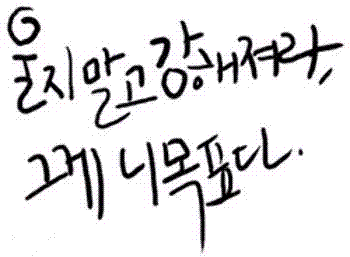 울지말고강해져라,
그게 니목표다.